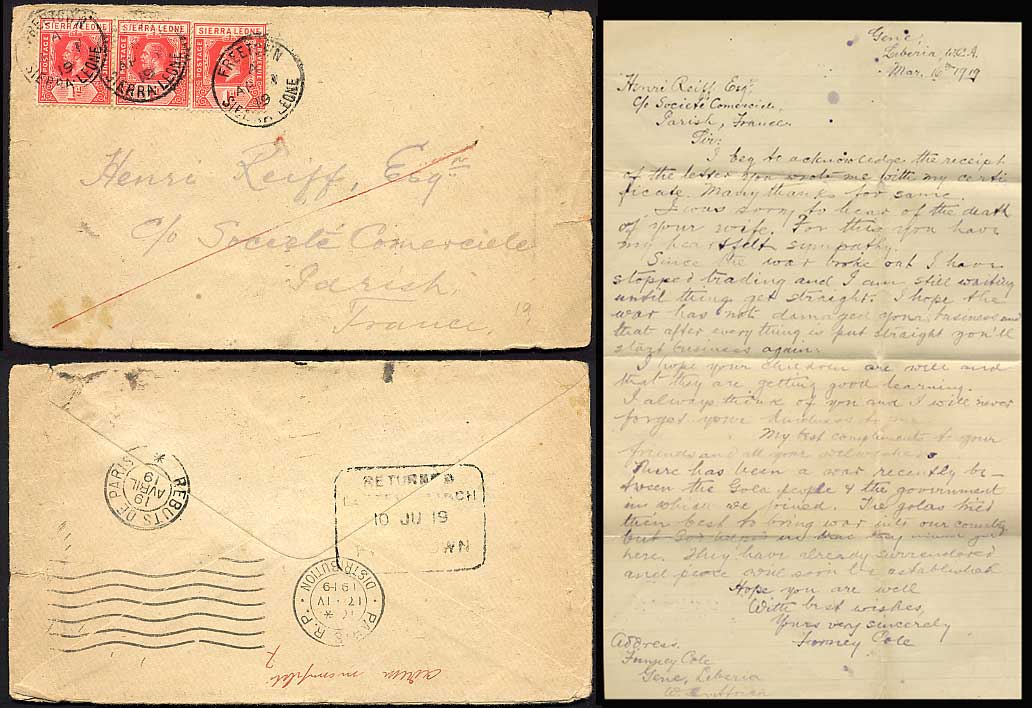 SIERRA LEONE
SIERRA LEONE
SIERRA LEONE
POSTAGE
POSTAGE
POSTAGE
REVENUE
FREETOWN
SIERRA LEONE
SIERRA LEONE
FREETOWN
SIERRA LEONE
19
Henri Reiff, Esqre
c/o Societé Comerciele
Parish,
France,
19
REBUTS DE PARIS
19
AVRIL
19
RETURNED
10 JU 19
WN
PARIS R.P.
17 IV
1919
DISTRIBUTION
Gene,
Liberia, W.C.A.
Mar. 16th 1919
Henri Reiff Esqr
c/o Societé Comerciele,
Parish, France.
Sir:
I beg to acknowledge the receipt
of the letter you wrote me with my certi
ficate. Many thanks for same.
I was sorry to hear of the death
of your wife. For this you have
my heartfelt sympathy.
Since the war broke out I have
stopped trading and I am still waiting
until thing get straight. I hope the
war has not damaged your business and
that after everything is put straight you'll
start business again.
I hope your children are well and
that they are getting good learning.
I always think of you and I will never
forget your kindness to me.
My best compliments to your
friends and all your
There has been a war recently be-
tween the Gola people & the government
in which we joined. The golas tried
their best to bring war into our country
but God helped us that they
here. They have already surrendered
and peace will soon be established
Hope you are well
With best wishes,
Yours very sincerely
Cole
Address.
Cole
Gene, Liberia
W. Africa